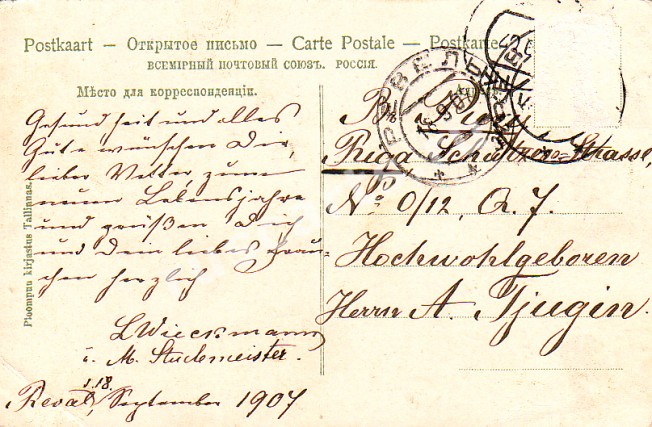 Postkaart — Открытое письмо — Carte Postale — Postkarte
ВСЕМІРНЫЙ ПОЧТОВЫЙ СОЮЗЪ. РОССІЯ.
Мѣсто для корреспонденціи.
Gesundheit und alles
Gute wünschen Dir,
lieber Vetter, zum
neuen Lebensjahre
und grüßen Dich
und Dein liebes Frau-
chen herzlich
L Wieckmann
u. M. Studemeister.
Reval, 1.18. September 1907
Ploompuu kirjastus Tallinnas.
РЕВЕЛЬ
Riga Schützen-Strasse,
No 0/12, Q. 7.
Hochwohlgeboren
Herrn A. Tjugin.